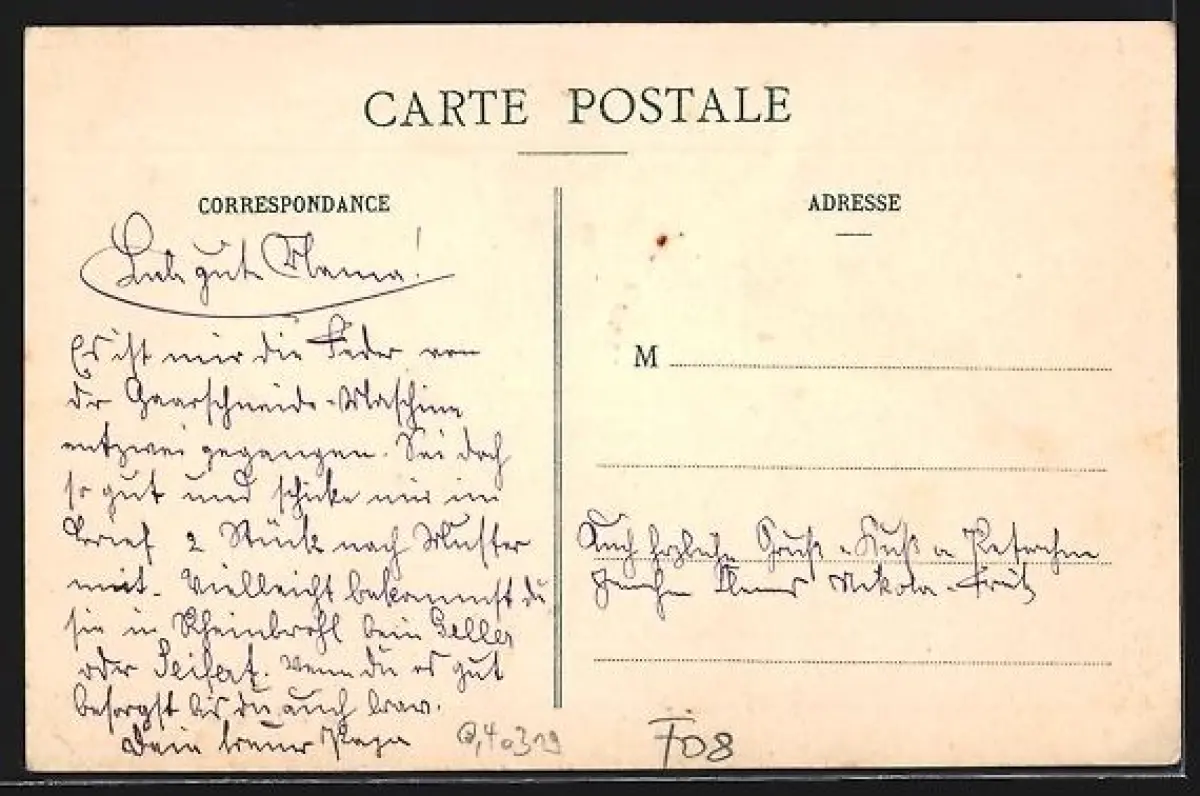 CARTE POSTALE
CORRESPONDANCE
Liebe gute Mama!
Es ist mir die Feder von
der Haarschneide-Maschine
entzwei gegangen. Sei doch
so gut und schicke mir im
Brief 2 Stück nach Muster
mit. Vielleicht bekommst du
sie in Rheinbrohl beim Geller
oder Seifert. Wenn du es gut
besorgst bis du auch brav.
Dein treuer Papa
ADRESSE
M
Auch herzliche Gruß u Kuß an
Nikola Fritz
F08